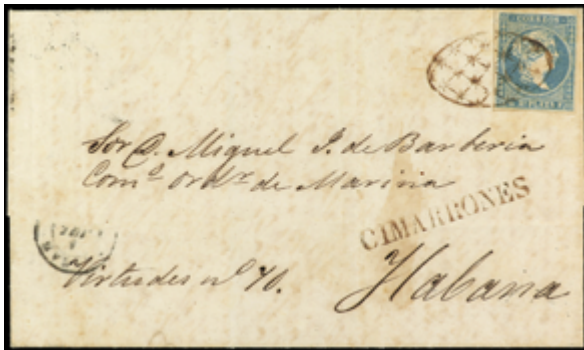 CORREOS
Sor D. Miguel J. de Barberia
Com.º Ordr de Marina
CIMARRONES
Virtudes nº 76.
Habana